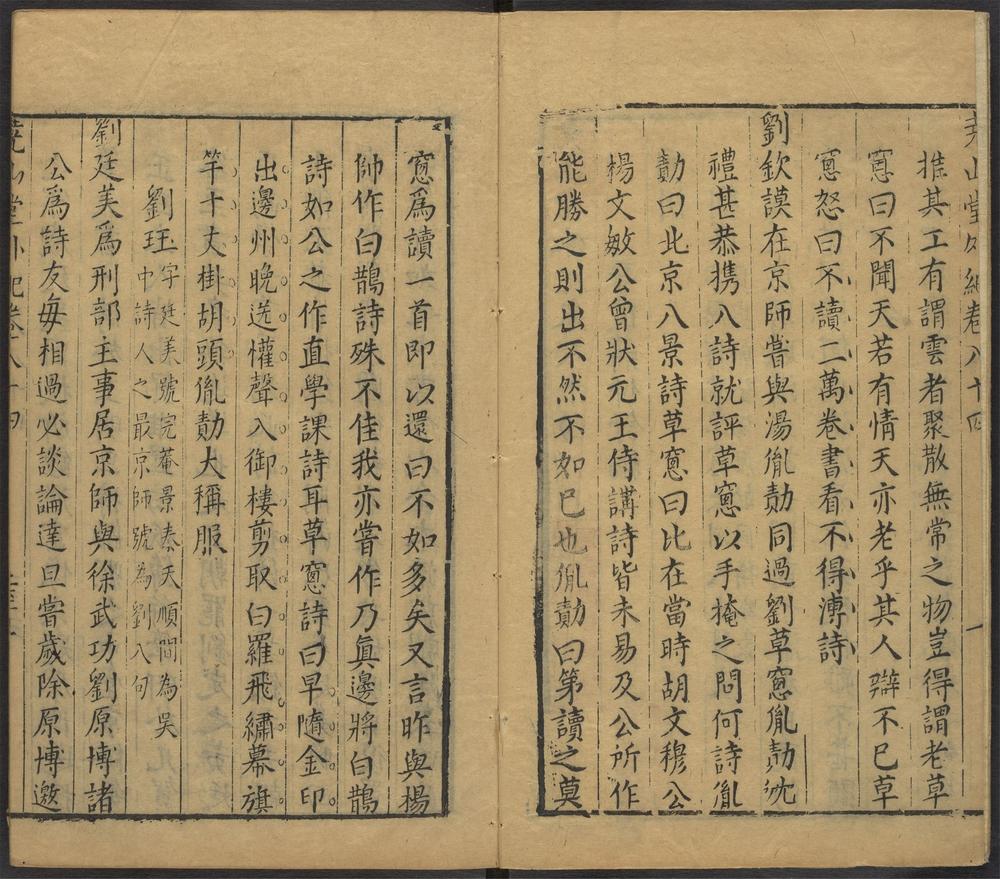 堯山堂外紀卷八十四 一
推其工有謂雲者聚散無常之物豈得謂老草
窓曰不聞天若有情天亦老乎其人辯不已草
窓怒曰不讀二萬卷書看不得溥詩
劉欽謨在京師嘗與湯胤勣同過劉草窓胤勣沈
禮甚恭携八詩就評草窓以手掩之問何詩胤
勣曰北京八景詩草窓曰比在當時胡文穆公
楊文敏公曾狀元王侍講詩皆未易及公所作
能勝之則出不然不如已也胤勣曰第讀之莫
窓爲讀一首即以還曰不如多矣又言昨與楊
帥作白鵲詩殊不佳我亦嘗作乃眞邊將白鵲
詩如公之作直學課詩耳草窓詩曰早隨金印
出邊州晚送懽聲入御樓剪取白羅飛繡幕旗
竿十丈掛胡頭胤勣大稱服
劉珏字廷美號完菴景泰天順間為吳
中詩人之最京師號為劉八句
劉廷美爲刑部主事居京師與徐武功劉原博諸
公爲詩友每相過必談論達旦嘗歲除原博邀
堯山堂外紀卷八十四